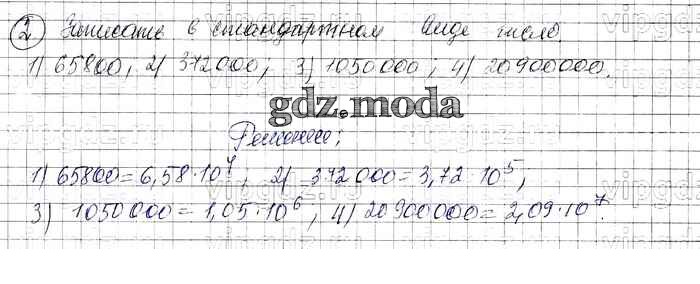 ② Записать в стандартном виде число.
1) 65800, 2) 372000; 3) 1050000; 4) 20900000.
gdz.moda
Решение:
1) 65800 = 6,58·10⁴; 2) 372000 = 3,72·10⁵;
3) 1050000 = 1,05·10⁶; 4) 20900000 = 2,09·10⁷.